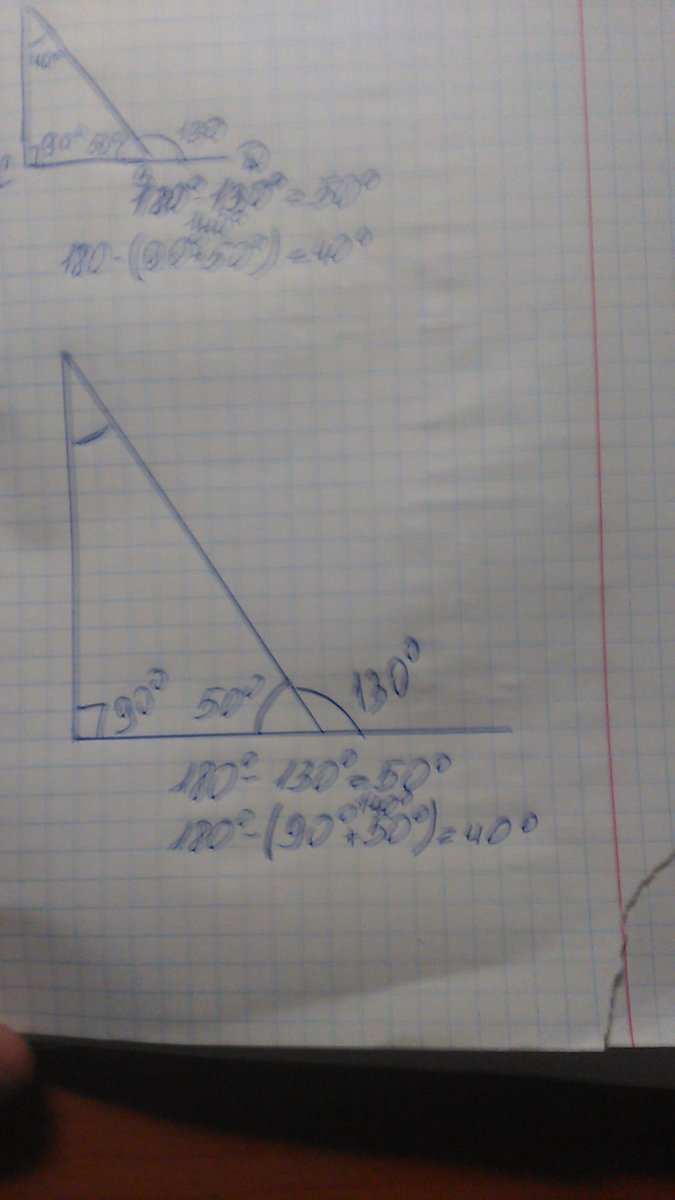 40°
90° 50° 130
180° - 130° = 50°
140°
180 - (90° + 50°) = 40°
90° 50° 130°
180° - 130° = 50°
140°
180° - (90° + 50°) = 40°